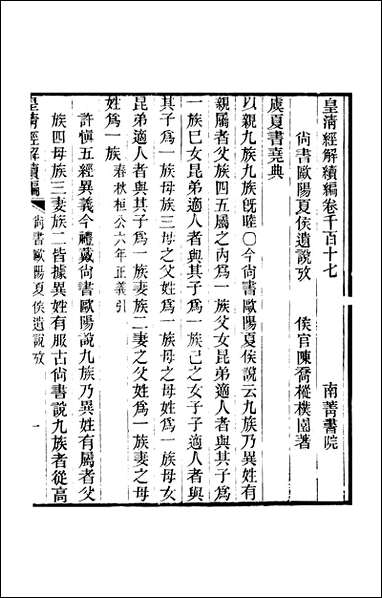 皇清經解續編卷千百十七　南菁書院
尚書歐陽夏侯遺說攷　侯官陳喬樅樸園著
虞夏書堯典
以親九族九族旣睦〇今尚書歐陽夏侯說云九族乃異姓有
親屬者父族四五屬之內爲一族父女昆弟適人者與其子爲
一族己女昆弟適人者與其子爲一族己之女子子適人者與
其子爲一族母族三母之父姓爲一族母之母姓爲一族母女
昆弟適人者與其子爲一族妻族二妻之父姓爲一族妻之母
姓爲一族 春秋桓公六年正義引
許愼五經異義今禮戴尚書歐陽說九族乃異姓有屬者父
族四母族三妻族二皆據異姓有服古尚書說九族者從高
皇淸經解續編　尚書歐陽夏侯遺說攷　一